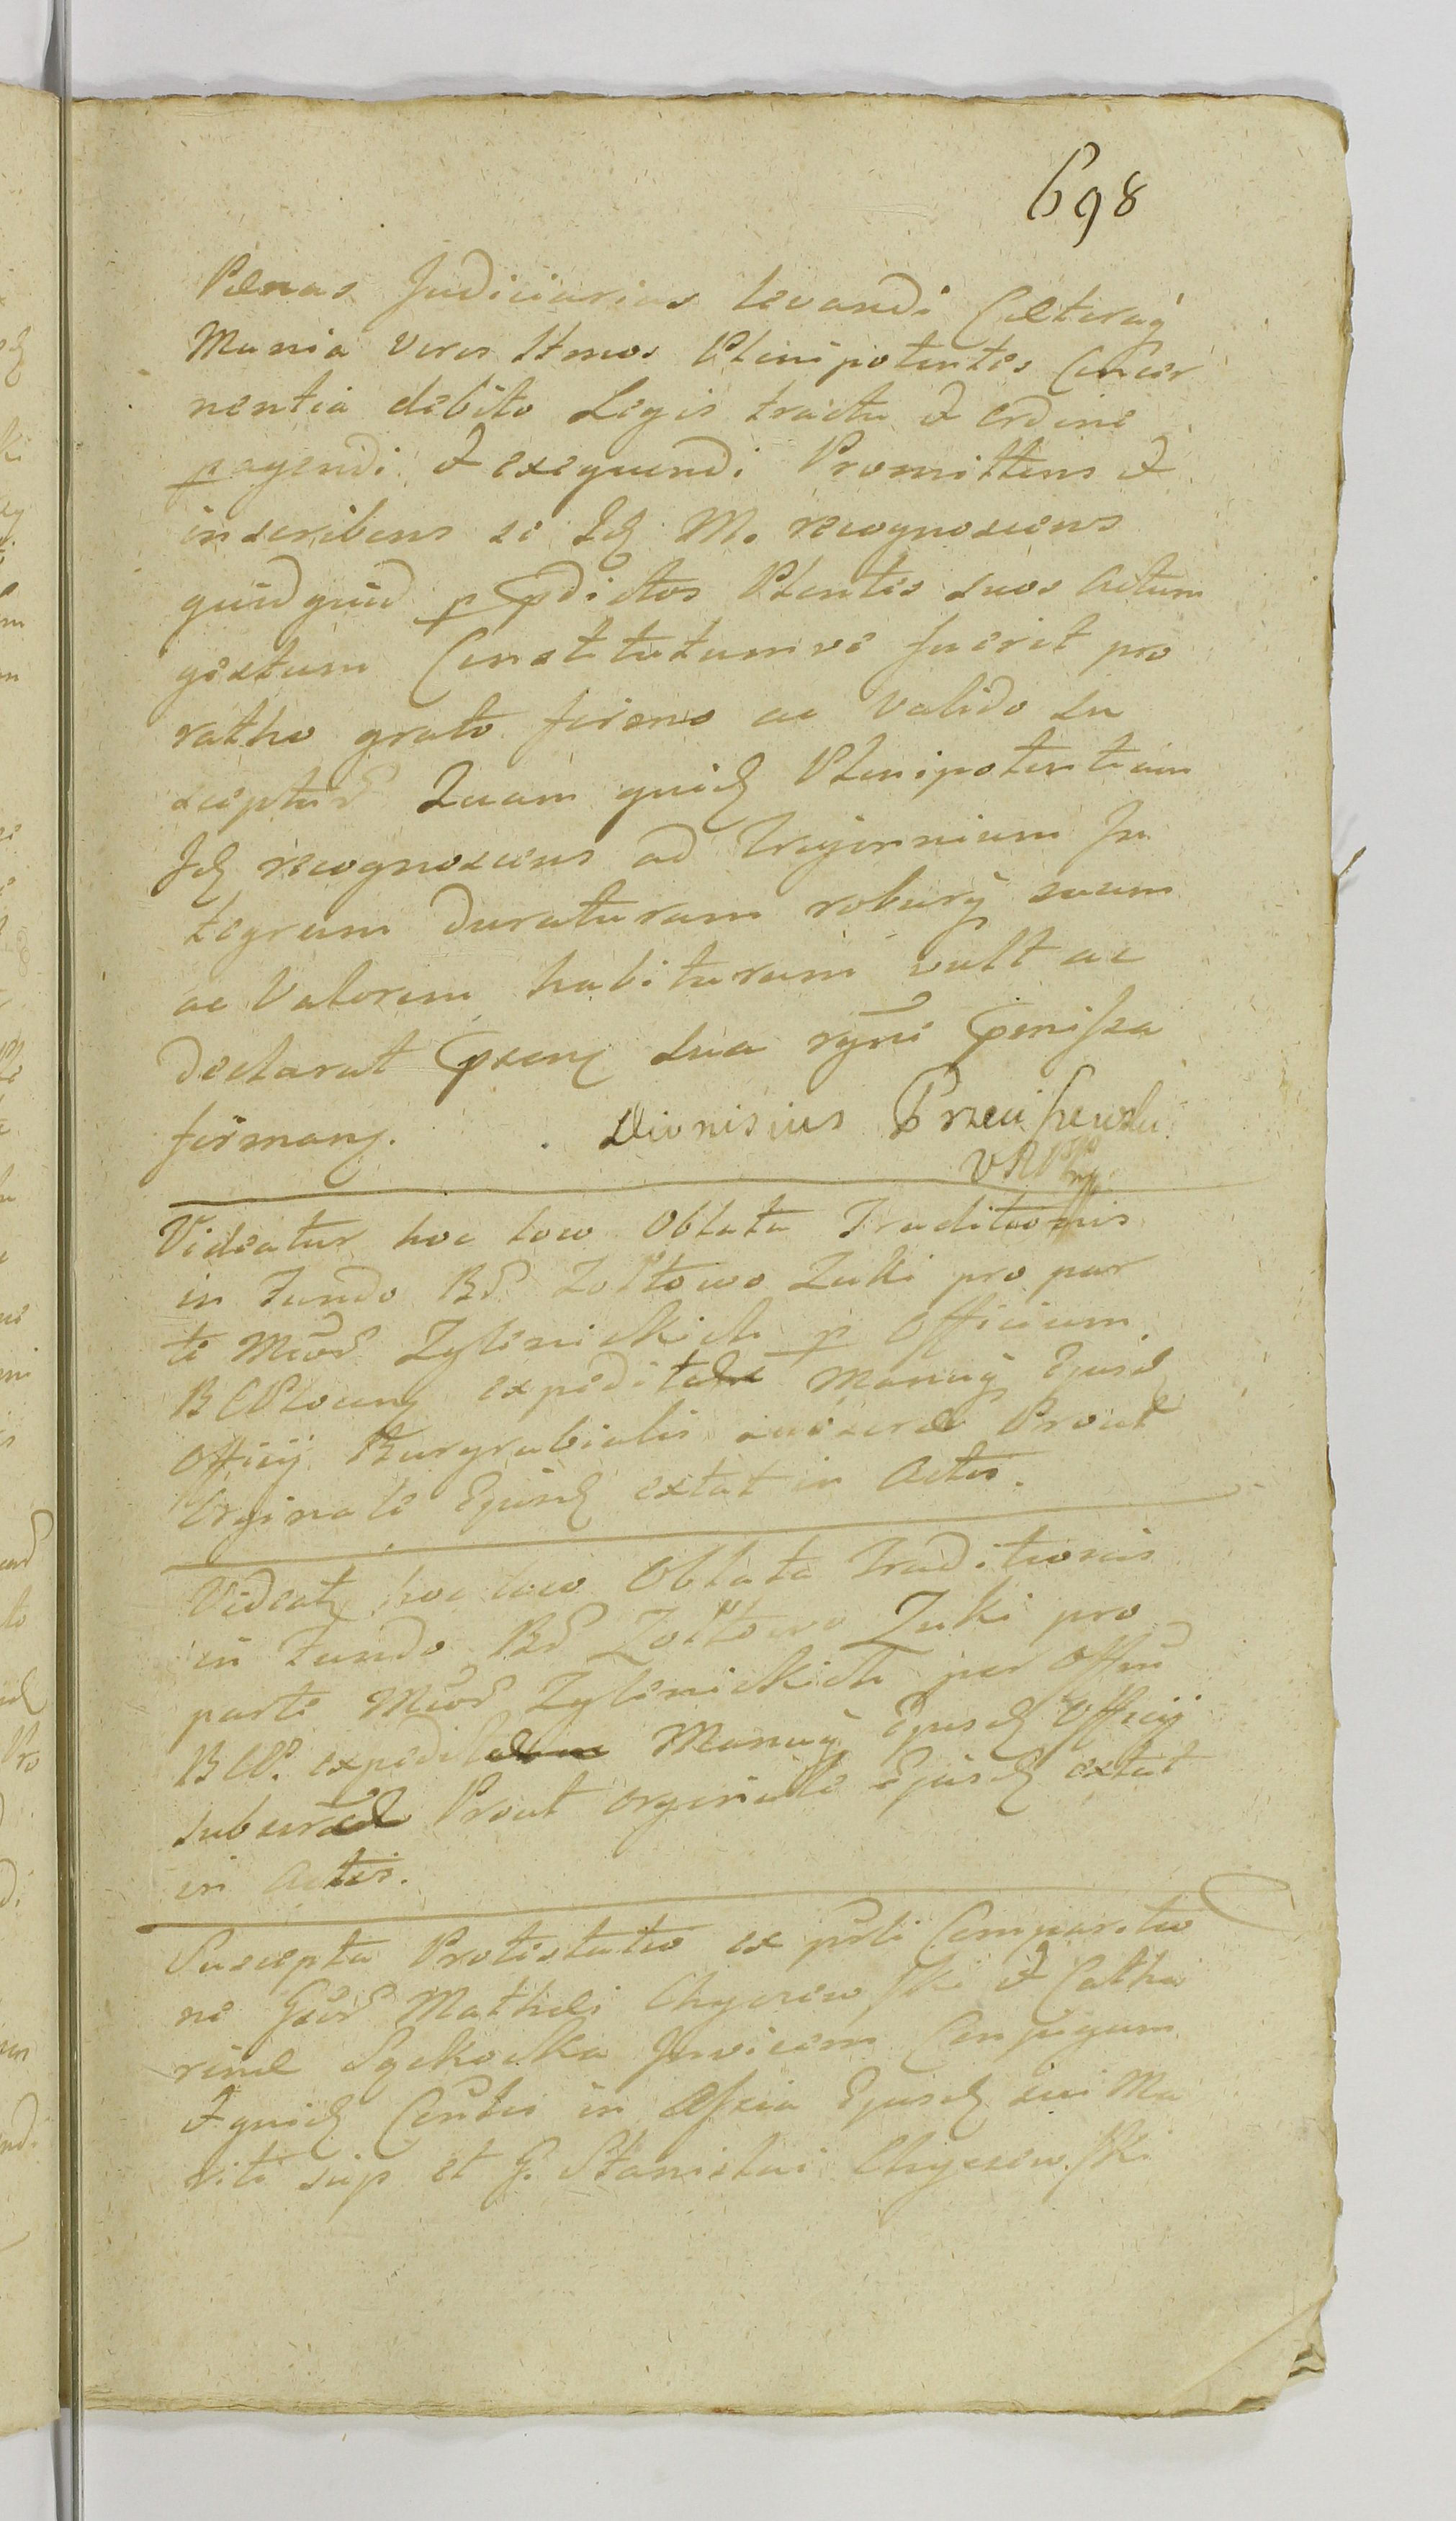 698
Pœnas Judiciarias levandi Cæteraq́
Munia veros Ltmos Plenipotentes Concer
nentia debito Legis tractu & ordine
pagendi & exequendi Promittens &
inscribens se Idq M. recognoscens
quidquid p pdictos Plentes suos actum
gestum Constitutumve fuerit pro
ratho grato firmo ac valido su
scepturus Quam quidq Plenipotentiam
Idq recognoscens ad Tryennium In
tegrum duraturam roburq́ suum
ac Valorem habituram vult ac
declarat psenq sua ryne penissa
firmanq. Dionisius Przeciszewski
VRP mp
Videatur hoc loco Oblata Traditionis
in Fundo Br Zołtowo Zuki pro par
te Mcor Zylenickich p Officium
BCPlocenq expedita Manuq́ Ejusd
Officij Burgrabialis subscræ Prout
Orginale Ejusdq extat in Actis.
Videatq hoc loco Oblata Traditionis
in Fundo Br Zołtowo Zuki pro
parte Mcor Zylenickich per Offm
BCP. expedita Manuq́ Ejusdq Officij
subscræ Prout orginale Ejusdq extat
in Actis.
Suscepta Protestatio ex prti Comparitio
ne Gsor Mathei Chyczewski & Catha
rinæ Sqckocka Invicem Conjugum
& quidq Contis in Assia Ejusdq sui Ma
riti sup et G. Stanislai Chyczewski